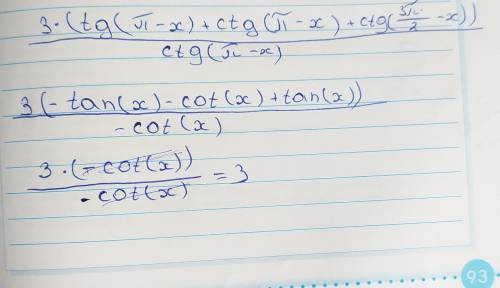 3·(tg(π-x)+ctg(π-x)+ctg(3π/2-x))
ctg(π-x)
3(-tan(x)-cot(x)+tan(x))
-cot(x)
3·(-cot(x))
-cot(x) =3
93